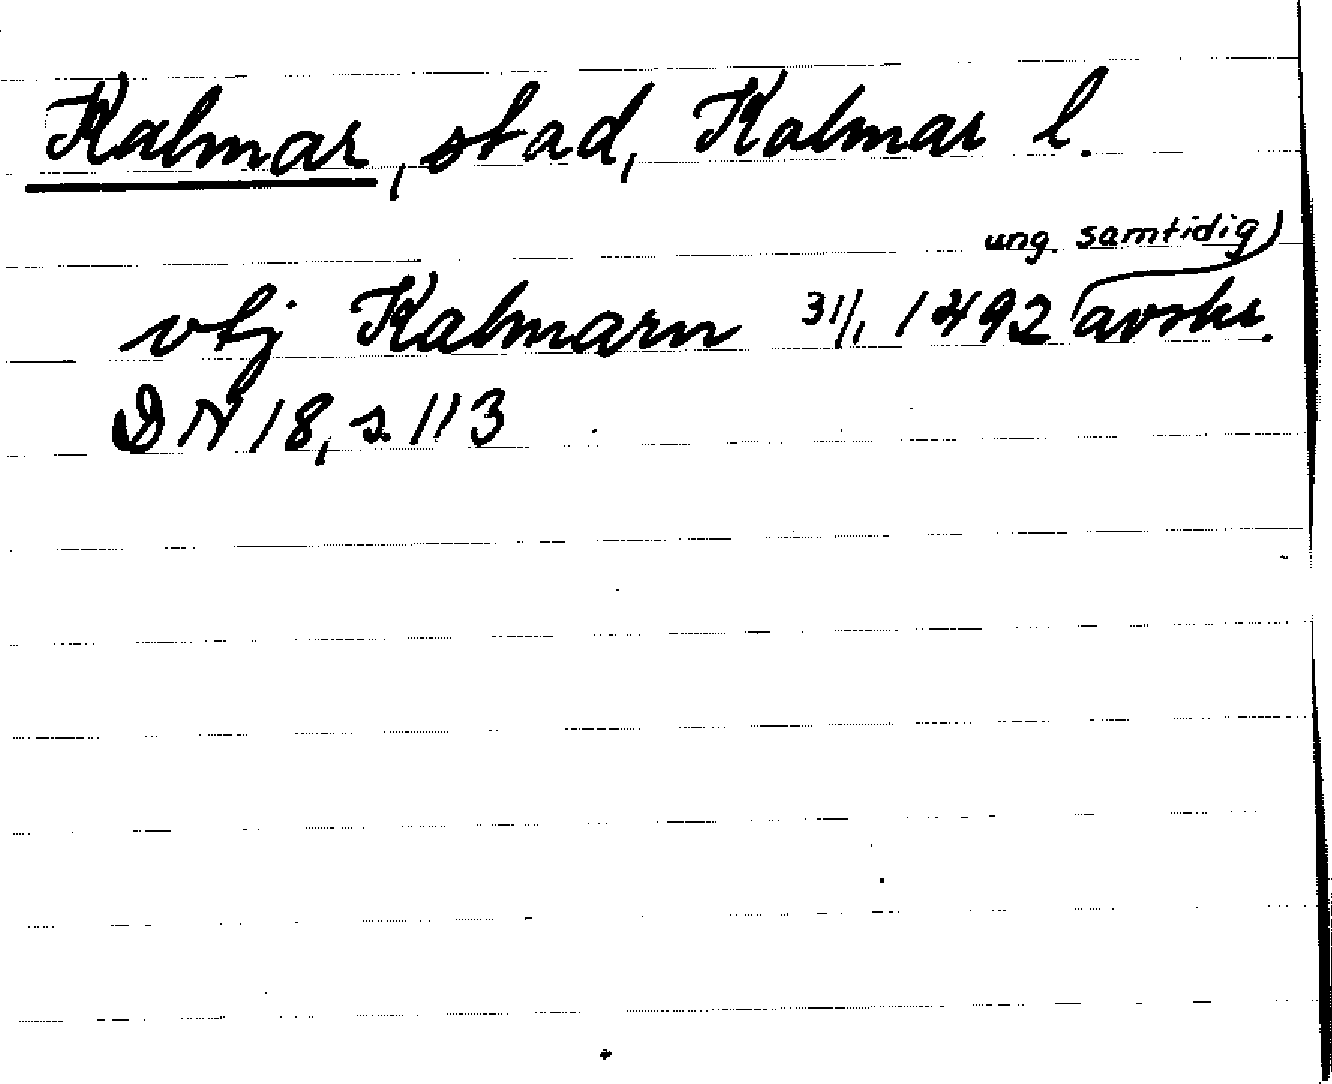 Kalmar, stad, Kalmar l.
ung. samtidig
vtj Kalmarn 31/1 1492 avskr.
DN 18, s. 113